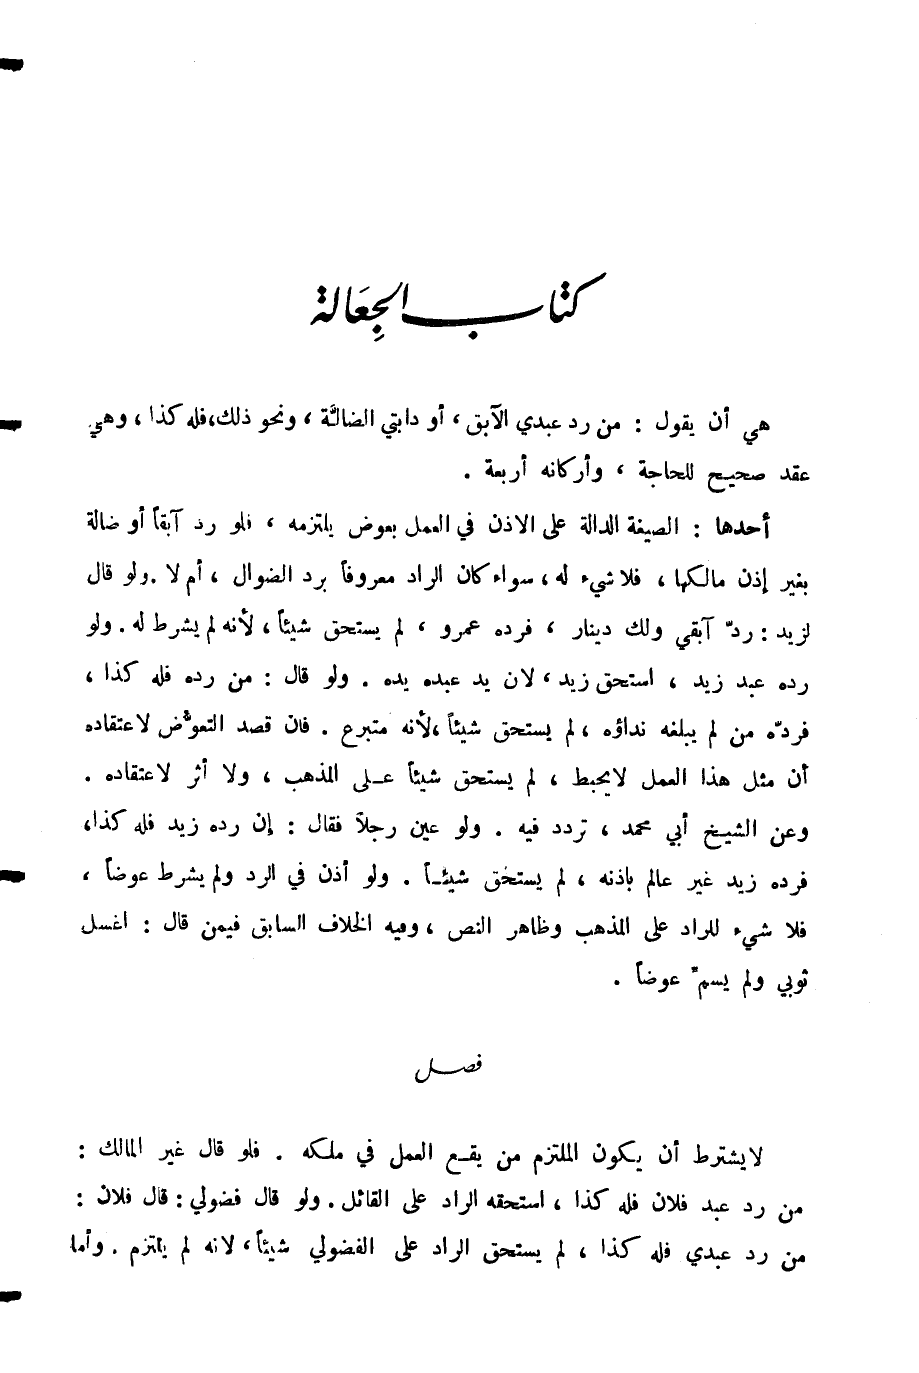 كتاب الجِعَالة
هي أن يقول : من رد عبدي الآبق ، أو دابتي الضالَّة ، ونحو ذلك،فله كذا ، وهي
عقد صحيح للحاجة ، وأركانه أربعة .
أحدها : الصيغة الدالة على الاذن في العمل بعوض يلتزمه ، فلو رد آبقاً أو ضالة
بغير إذن مالكها ، فلا شيء له ، سواء كان الراد معروفاً برد الضوال ، أم لا .ولو قال
لزيد : ردّ آبقي ولك دينار ، فرده عمرو ، لم يستحق شيئاً ، لأنه لم يشرط له . ولو
رده عبد زيد ، استحق زيد ، لان يد عبده يده . ولو قال : من رده فله كذا ،
فردّه من لم يبلغه نداؤه ، لم يستحق شيئاً ،لأنه متبرع . فان قصد التعوُّض لاعتقاده
أن مثل هذا العمل لايحبط ، لم يستحق شيئاً عـلى المذهب ، ولا أثر لاعتقاده .
وعن الشيخ أبي محمد ، تردد فيه . ولو عين رجلاً فقال : إن رده زيد فله كذا،
فرده زيد غير عالم باذنه ، لم يستحق شيئـاً . ولو أذن في الرد ولم يشرط عوضاً ،
فلا شيء للراد على المذهب وظاهر النص ، وفيه الخلاف السابق فيمن قال : اغسل
ثوبي ولم يسمّ عوضاً .
فصـل
لايشترط أن يكون الملتزم من يقـع العمل في ملكه . فلو قال غير المالك :
من رد عبد فلان فله كذا ، استحقه الراد على القائل . ولو قال فضولي : قال فلان :
من رد عبدي فله كذا ، لم يستحق الراد على الفضولي شيئاً ، لانه لم يلتزم . وأما